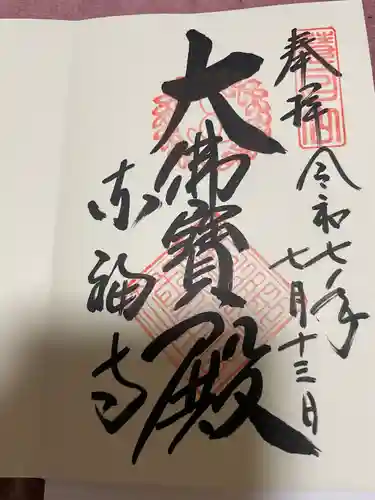 奉拝
令和七年
七月十三日
大佛寶殿
東福寺